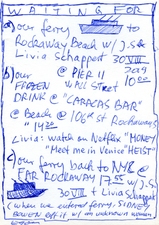 WAITING FOR
a) our ferry to
Rockaway Beach w/ J.S. &
Livia Schappert 30 VIII
2019
b) our @ PIER 11 10:00
FROZEN WALL Street
DRINK @ "CARACAS BAR"
@ Beach @ 106st Rockaways
14:20
Livia: watch on Netflix "MONEY
"Meet me in Venice" HEIST"
c) our ferry back to NYC @
FAR ROCKAWAY 17:55 w/ J.S.
30 VIII + Livia Schappert
(when we entered ferry, SIDNEY
BOWEN off it w/ an unknown women